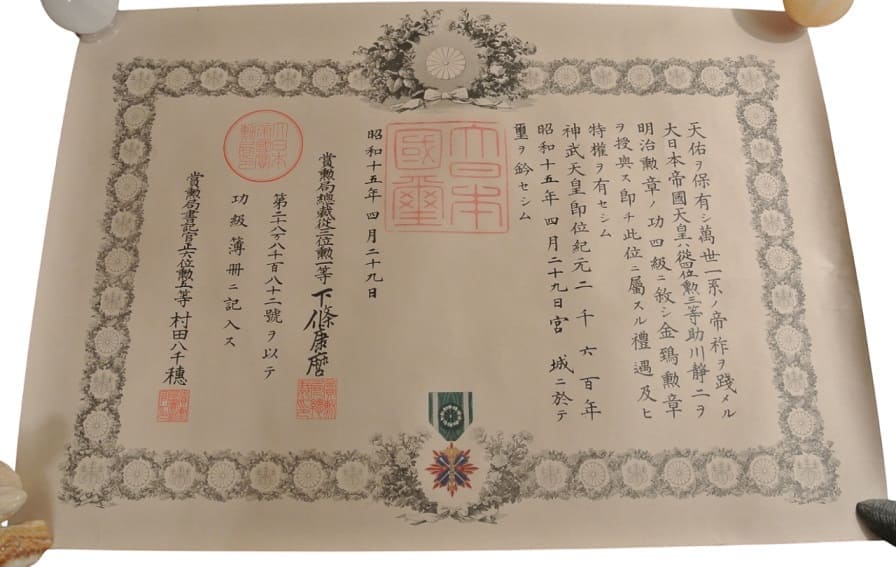 天佑ヲ保有シ萬世一系ノ帝祚ヲ踐メル
大日本帝國天皇ハ從四位勲三等助川靜二ヲ
明治勲章ノ功四級ニ敘シ金鵄勲章
ヲ授與ス即チ此位ニ屬スル禮遇及ヒ
特權ヲ有セシム
神武天皇即位紀元二千六百年
昭和十五年四月二十九日宮城ニ於テ
璽ヲ鈐セシム
大日本
國璽
昭和十五年四月二十九日
賞勲局總裁從三位勲一等下條康麿
第二万八千百八十二號ヲ以テ
功級簿冊ニ記入ス
賞勲局書記官正六位勲五等村田八千穗